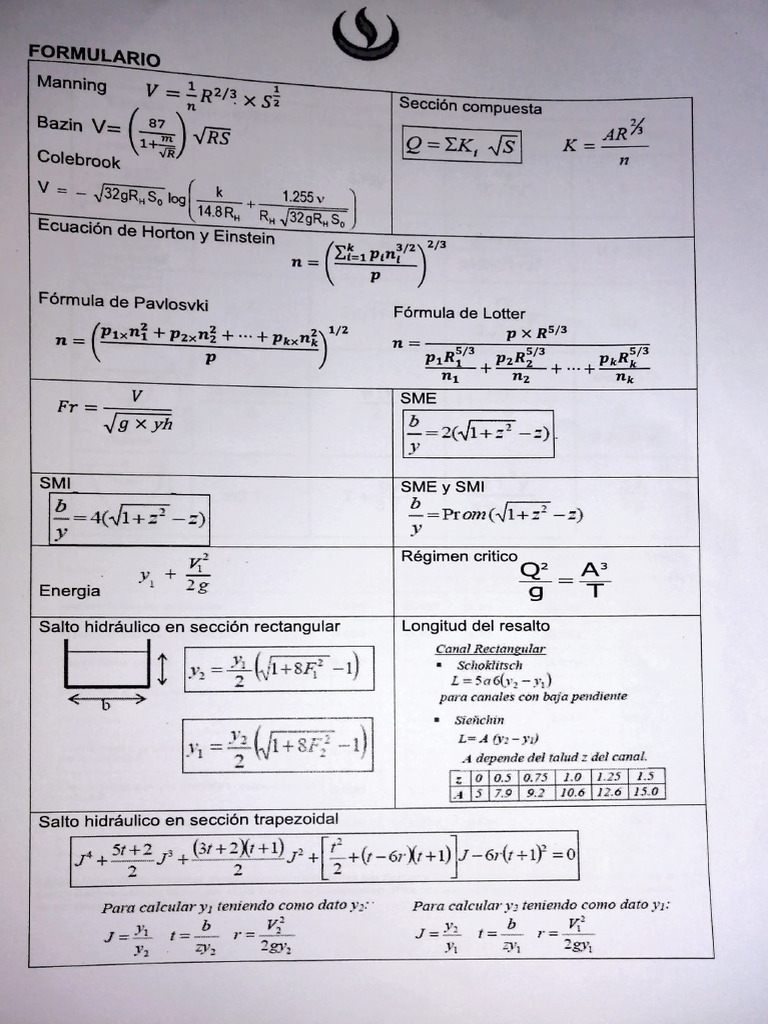 FORMULARIO
Manning V = 1/n R^2/3 × S^1/2
Bazin V= (87 / (1+ m/√R)) √RS
Colebrook
V = − √32gR_H S_0 log (k / 14.8 R_H + 1.255 ν / R_H √32gR_H S_0)
Sección compuesta
Q = ΣK_i √S K = AR^2/3 / n
Ecuación de Horton y Einstein
n = (∑_{i=1}^{k} p_i n_i^{3/2} / p)^{2/3}
Fórmula de Pavlosvki
n = (p_{1×}n_1^2 + p_{2×}n_2^2 + ⋯ + p_{k×}n_k^2 / p)^{1/2}
Fórmula de Lotter
n = p × R^{5/3} / (p_1R_1^{5/3} / n_1 + p_2R_2^{5/3} / n_2 + ⋯ + p_kR_k^{5/3} / n_k)
Fr = V / √g × yh
SME
b/y = 2(√1+z² − z)
SMI
b/y = 4(√1+z² − z)
SME y SMI
b/y = Prom(√1+z² − z)
Energia y_1 + V_1^2 / 2g
Régimen critico Q²/g = A³/T
Salto hidráulico en sección rectangular
b
y_2 = y_1/2 (√1+8F_1^2 −1)
y_1 = y_2/2 (√1+8F_2^2 −1)
Longitud del resalto
Canal Rectangular
▪ Schoklitsch
L = 5 a 6(y_2 − y_1)
para canales con baja pendiente
▪ Sieñchin
L= A (y_2 – y_1)
A depende del talud z del canal.
z 0 0.5 0.75 1.0 1.25 1.5
A 5 7.9 9.2 10.6 12.6 15.0
Salto hidráulico en sección trapezoidal
J^4 + 5t+2/2 J^3 + (3t+2)(t+1)/2 J^2 + [t^2/2 + (t−6r)(t+1)] J − 6r(t+1)^2 = 0
Para calcular y_1 teniendo como dato y_2:
J = y_1/y_2 t = b/zy_2 r = V_2^2/2gy_2
Para calcular y_2 teniendo como dato y_1:
J = y_2/y_1 t = b/zy_1 r = V_1^2/2gy_1